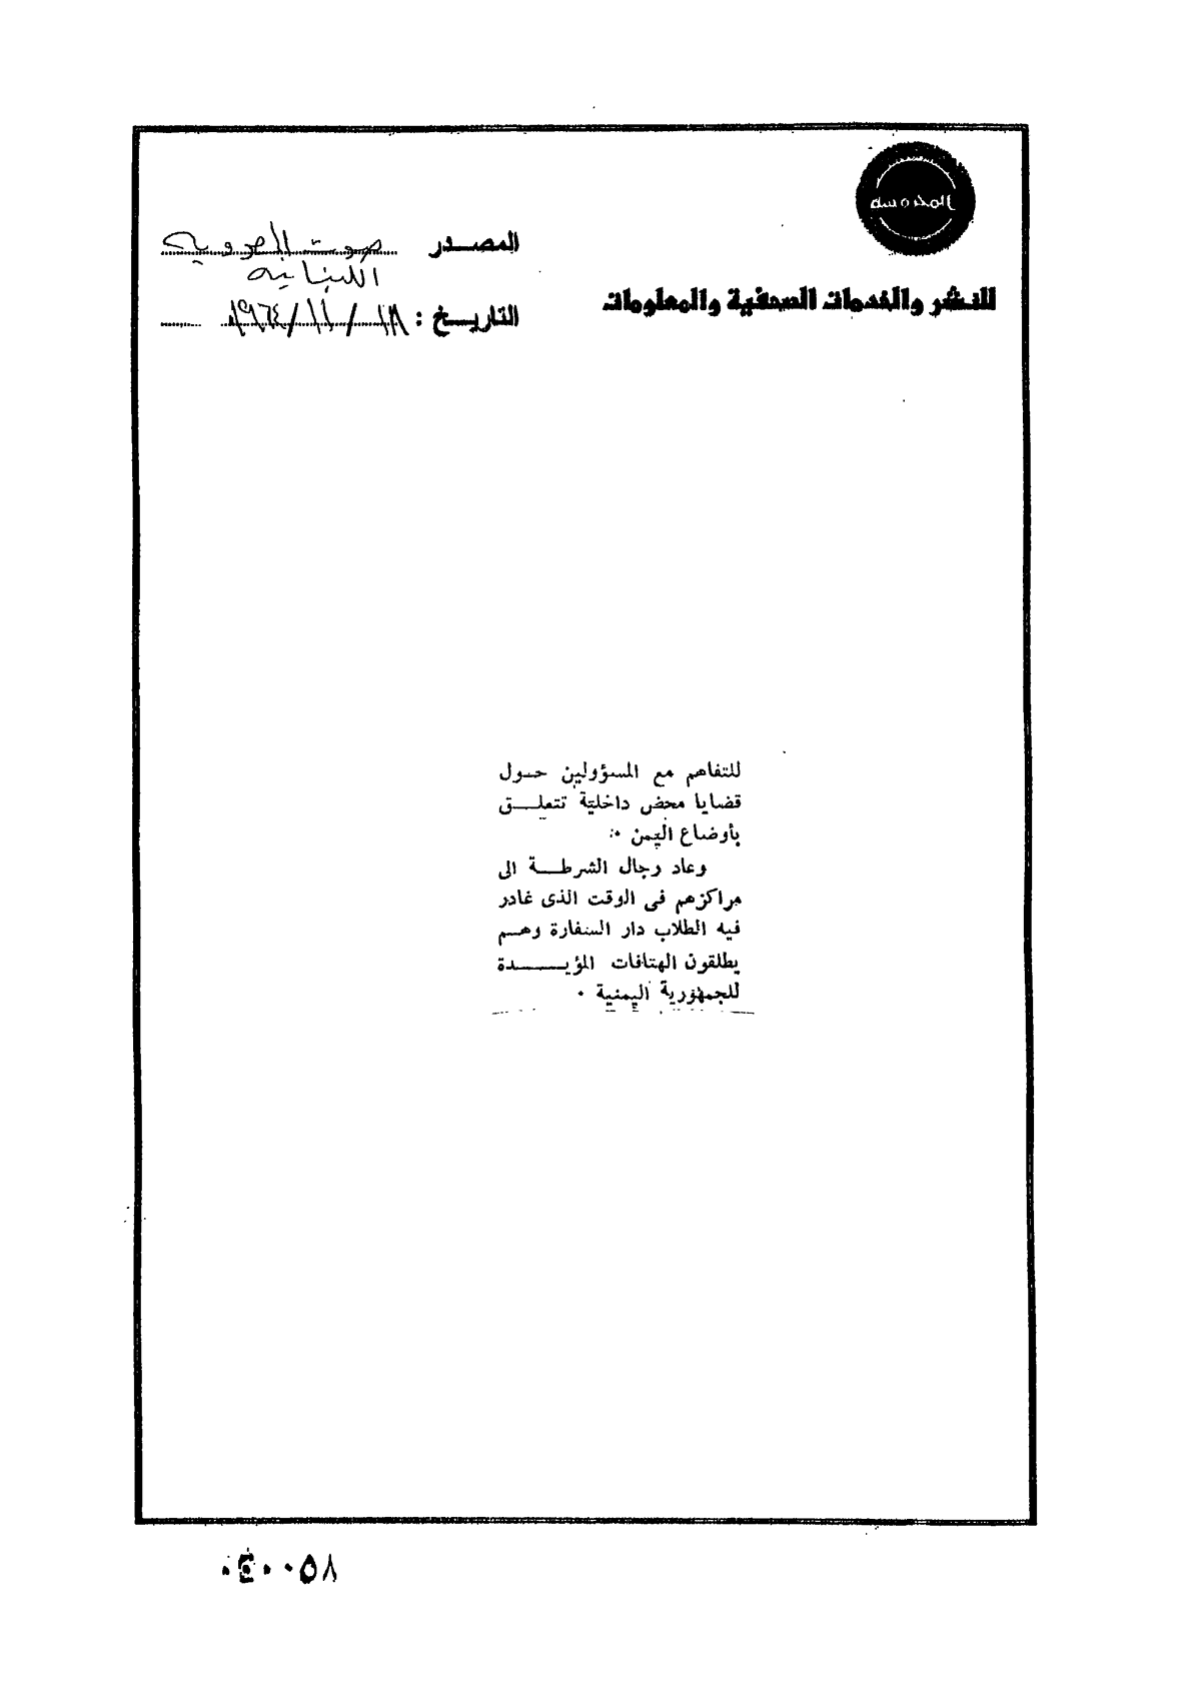 المحروسة
للنشر والخدمات الصحفية والمعلومات
المصدر صوت العروبه
اللبنانيه
التاريخ : ١٨/ ١١/ ١٩٦٤
للتفاهم مع المسؤولين حول
قضايا محض داخلية تتعلق
بأوضاع اليمن .
وعاد رجال الشرطة الى
مراكزهم فى الوقت الذى غادر
فيه الطلاب دار السفارة وهم
يطلقون الهتافات المؤيدة
للجمهورية اليمنية .